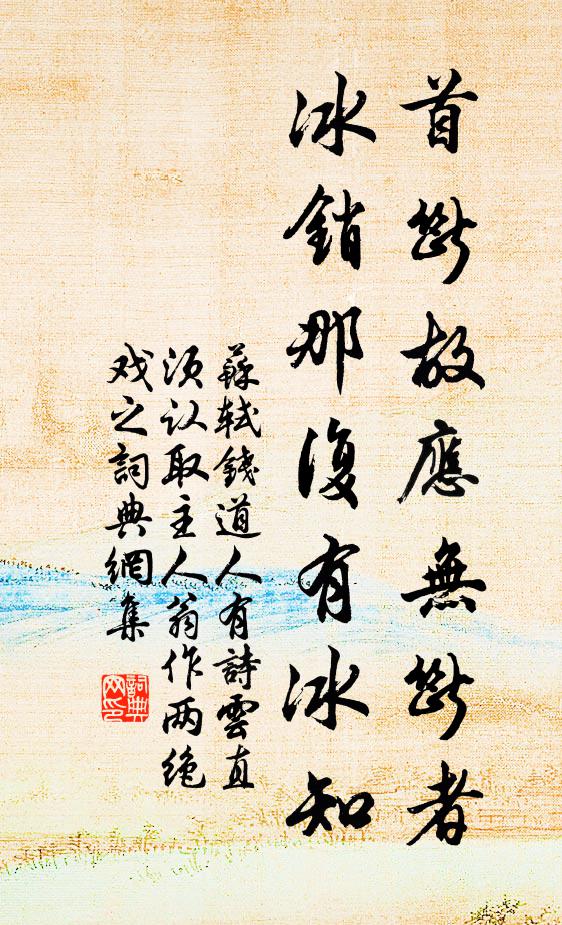 首斷故應無斷者
冰銷那復有冰知
蘇軾錢道人有詩雲直
須认取主人翁作两绝
戏之詞典網集
詞典
网印